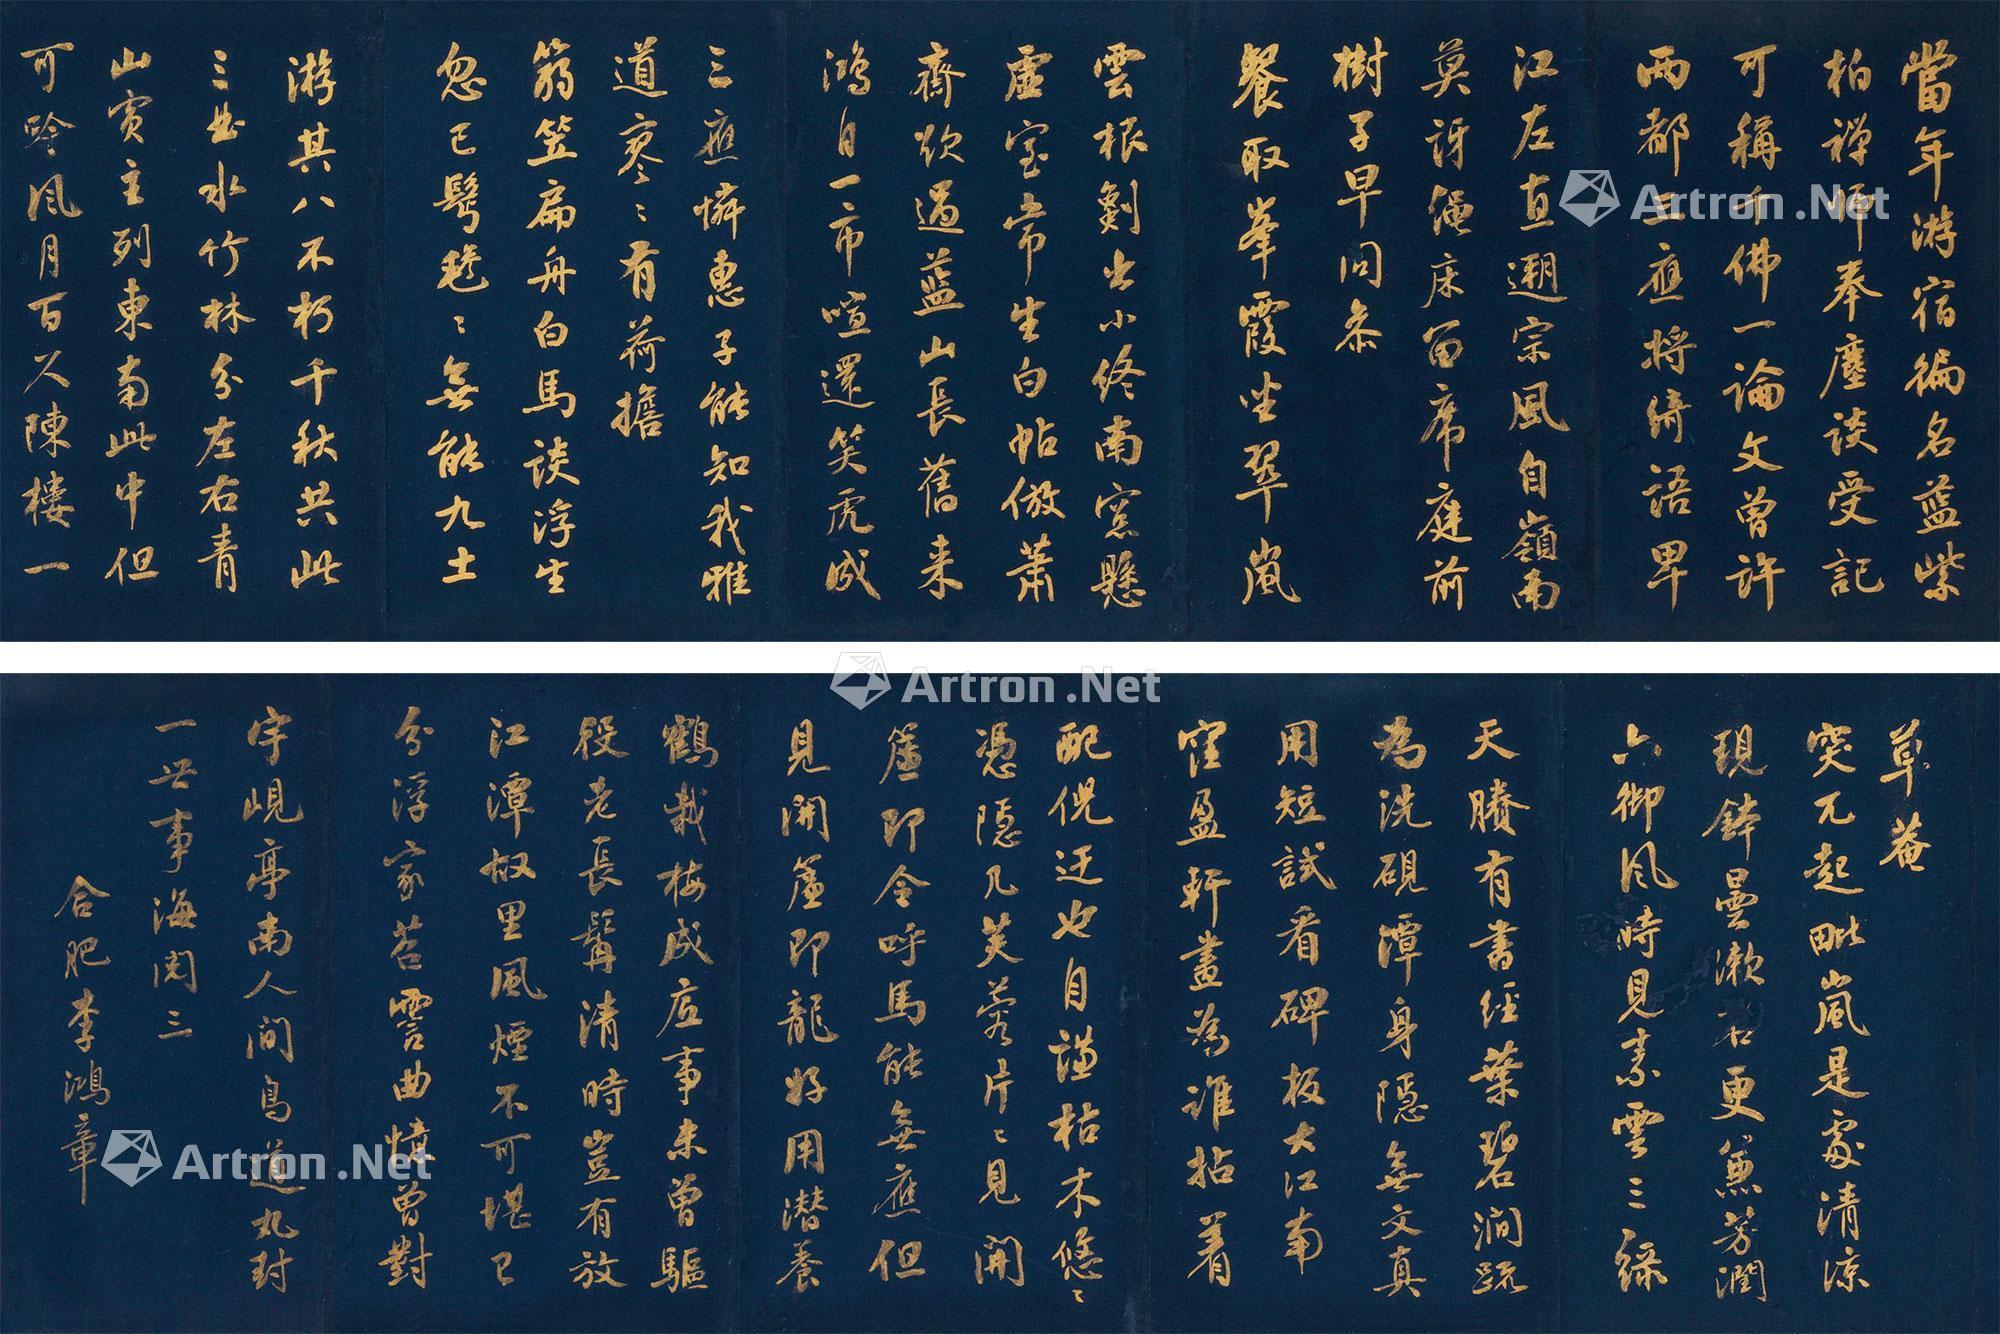 當年游宿徧名藍紫
柏禅师奉塵談受記
可稱千佛一論文曾許
兩都三應將綺語卑
江左直遡宗風自嶺南
莫訝繩床百席庭前
樹子早同參
餐取峯霞坐翠嵐
雲根劉出小終南窓懸
虛室常生白帖倣蕭
齋欲過藍山長舊来
鴻自一市喧還笑虎成
三應憐惠子能知我雅
道寥〻有荷擔
箬笠扁舟白馬談浮生
忽已鬂毿〻無能九土
游其八不朽千秋共此
三曲水竹林分左右青
山賓主列東南此中但
可吟風月百尺陳樓一
草菴
突兀起毗嵐是處清涼
現鉢曇漱石更兼芳潤
六御风時見素雲三綠
天賸有書經葉碧澗疏
為洗硯潭身隱無文真
用短試看碑板大江南
窪盈軒畫為誰拈着
配倪迂也自謙枯木悠〻
憑隱几芙蓉片〻見開
簾即令呼馬能無應但
見開簾即龍好用潜養
鶴栽梅成底事未曾驅
役老長髯清時豈有放
江潭杖里風煙不可堪已
分浮家苕霅曲憶曾對
宇峴亭南人間鳥道丸封
一世事海閱三
合肥李鴻章
Artron.Net
Artron.Net
Artron.Net